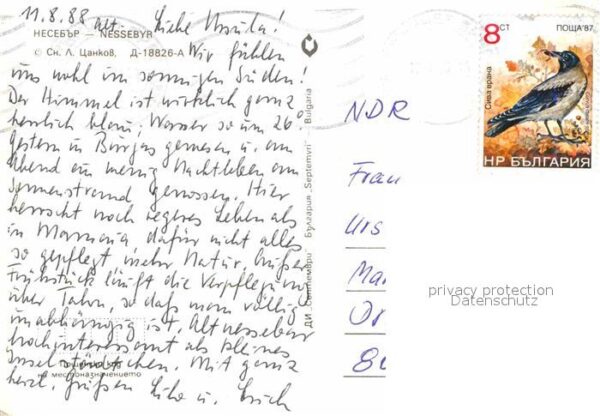 11.8.88 Liebe Ursula!
НЕСЕБЪР — NESSEBYR
© Сн. Л. Цанков. Д-18826-А
Wir fühlen
uns wohl im sonnigen Süden!
Der Himmel ist wirklich ganz
herrlich blau, Wasser so um 26°.
Gestern in Burgas gewesen u. am
Abend ein wenig Nachtleben am
Sonnenstrand genossen. Hier
herrscht noch regeres Leben als
in Mamaia, dafür nicht alles
so gepflegt mehr Natur. Außer
Frühstück läuft die Verpflegung
über Talon, so daß man völlig
unabhängig ist. Alt nessebar
hochinteressant als kleines
Inselstädtchen. Mit ganz
herzl. Grüßen Eike u. Erich
на местоназначението
ДИ „Септември" България "Septemvri" Bulgaria
8 СТ
ПОЩА'87
Сива врана
НР БЪЛГАРИЯ
NDR
Frau
Urs
Ma
Or
privacy protection
Datenschutz